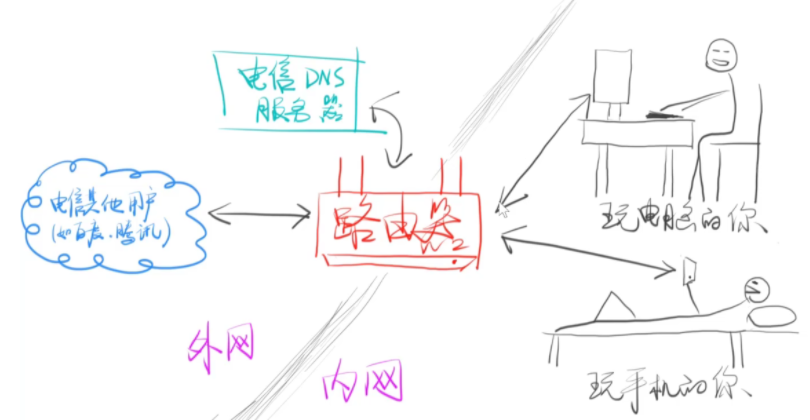 电信DNS
服务器
电信其他用户
(如百度、腾讯)
路由器
玩电脑的你
玩手机的你
外网
内网